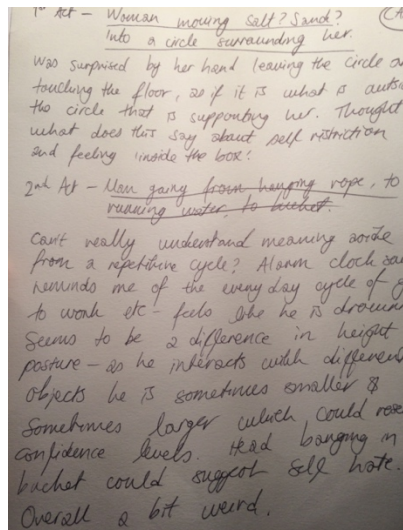 1st Act – Woman moving salt? Sand?
into a circle surrounding her.
Was surprised by her hand leaving the circle
touching the floor, as if it is what is
the circle that is supporting her. Thought
what does this say about self ristriction
and feeling inside the box?
2nd Act – Man going from hanging rope, to
running water, to bucket.
Can't really understand meaning
from a repetitive cycle? Alarm clock
reminds me of the everyday cycle of
to work etc – feels like he is
Seems to be a difference in height
posture – as he interacts with
objects he is sometimes smaller &
Sometimes larger which could
confidence levels. Head banging in
bucket could suggest self hate.
Overall a bit weird.